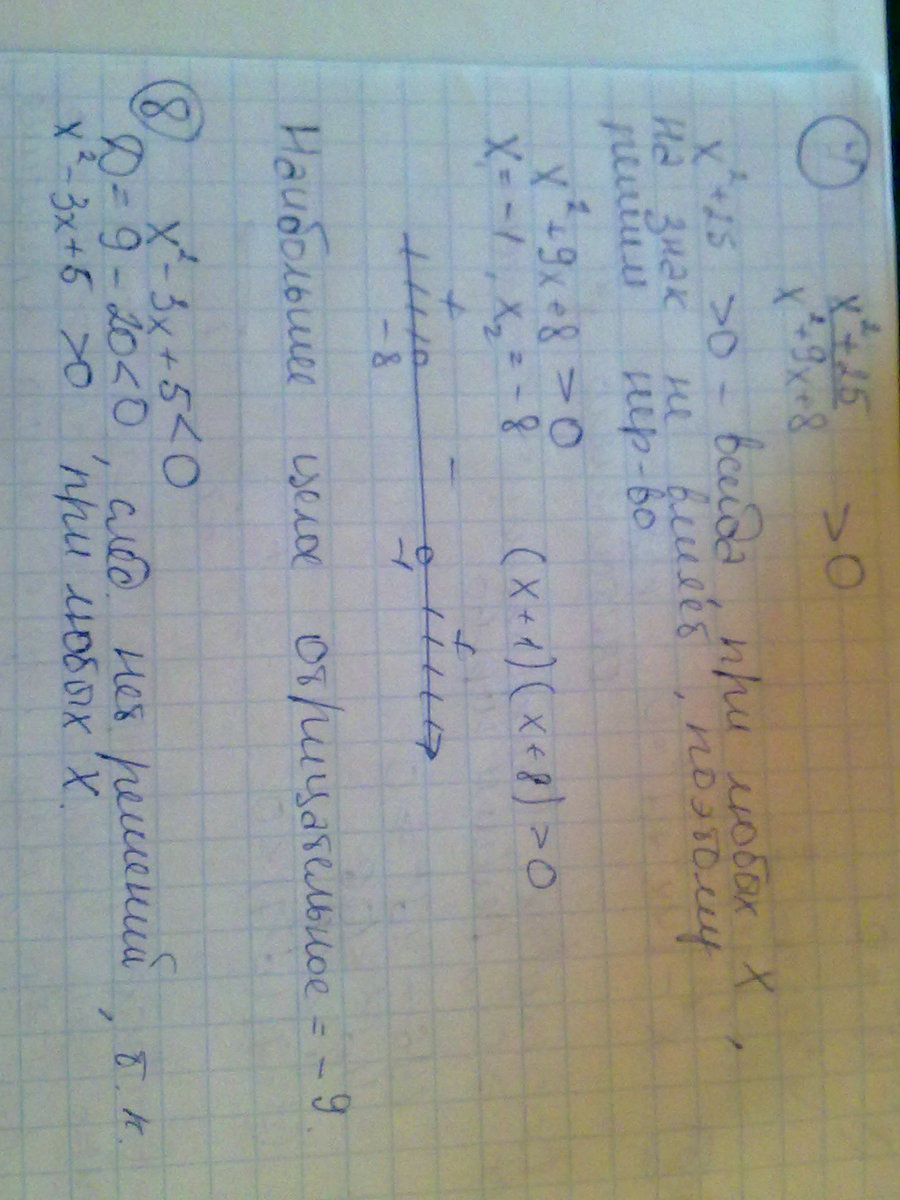 7
x² + 25
x² + 9x + 8 > 0
x² + 25 > 0 – всегда, при любых x,
на знак не влияет, поэтому
решим нер-во
x² + 9x + 8 > 0 (x + 1)(x + 8) > 0
x₁ = -1, x₂ = -8
+ – +
-8 -1
Наибольшее целое отрицательное = -9.
8 x² - 3x + 5 < 0
D = 9 - 20 < 0, след. нет решений, т.к.
x² - 3x + 5 > 0, при любых x.